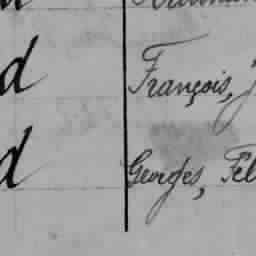 d François, J
d Georges, Fél